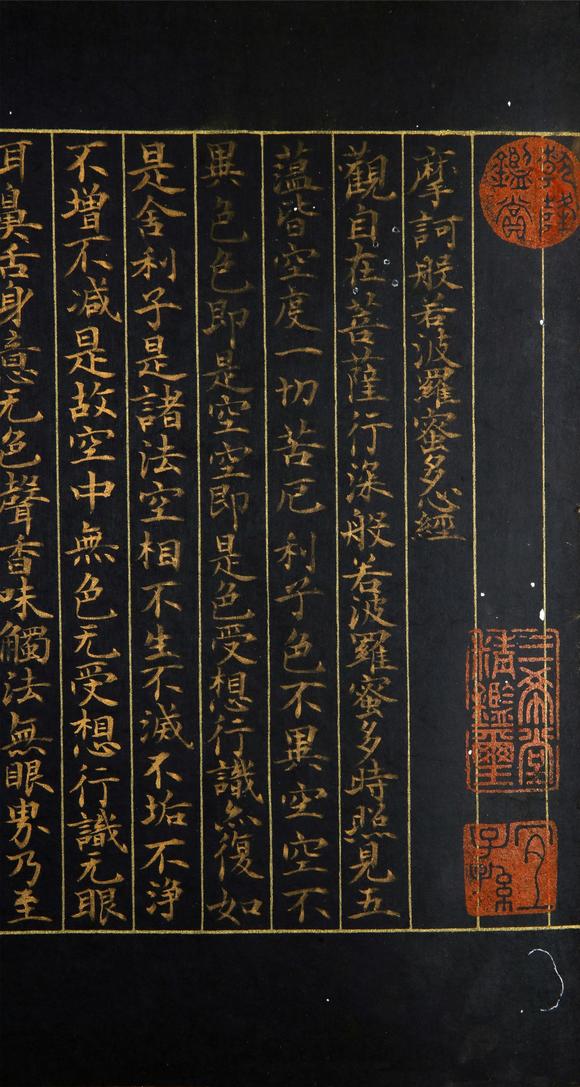 乾隆鑑賞
三希堂精鑑璽
宜子孫
摩訶般若波羅蜜多心經
觀自在菩薩行深般若波羅蜜多時照見五
薀皆空度一切苦厄利子色不異空空不
異色色即是空空即是色受想行識亦復如
是舍利子是諸法空相不生不滅不垢不淨
不增不減是故空中無色无受想行識无眼
耳鼻舌身意无色聲香味觸法無眼界乃至